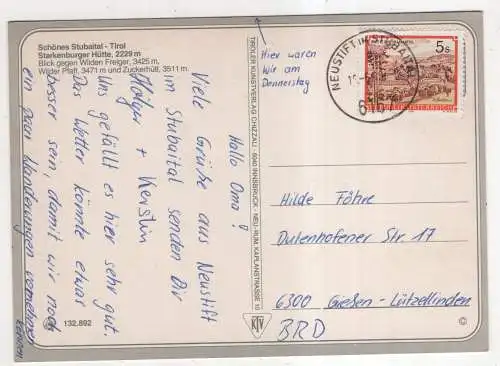 Schönes Stubaital - Tirol
Starkenburger Hütte, 2229 m
Blick gegen Wilden Freiger, 3425 m,
Wilder Pfaff, 3471 m und Zuckerhütl, 3511 m.
Hallo Oma!
Viele Grüße aus Neustift
im Stubaital senden Dir
Holger + Kerstin
Uns gefällt es hier sehr gut.
Das Wetter könnte etwas
besser sein, damit wir noch
ein paar Wanderungen vornehmen
können
132.892
TIROLER KUNSTVERLAG CHIZZALI · 6040 INNSBRUCK - NEU-RUM, KAPLANSTRASSE
KTV
Hier waren
wir am
Donnerstag
NEUSTIFT IM STUBAITAL
6167
5 S
REPUBLIK ÖSTERREICH
Hilde Föhre
Dutenhofener Str. 17
6300 Gießen-Lützellinden
BRD
©